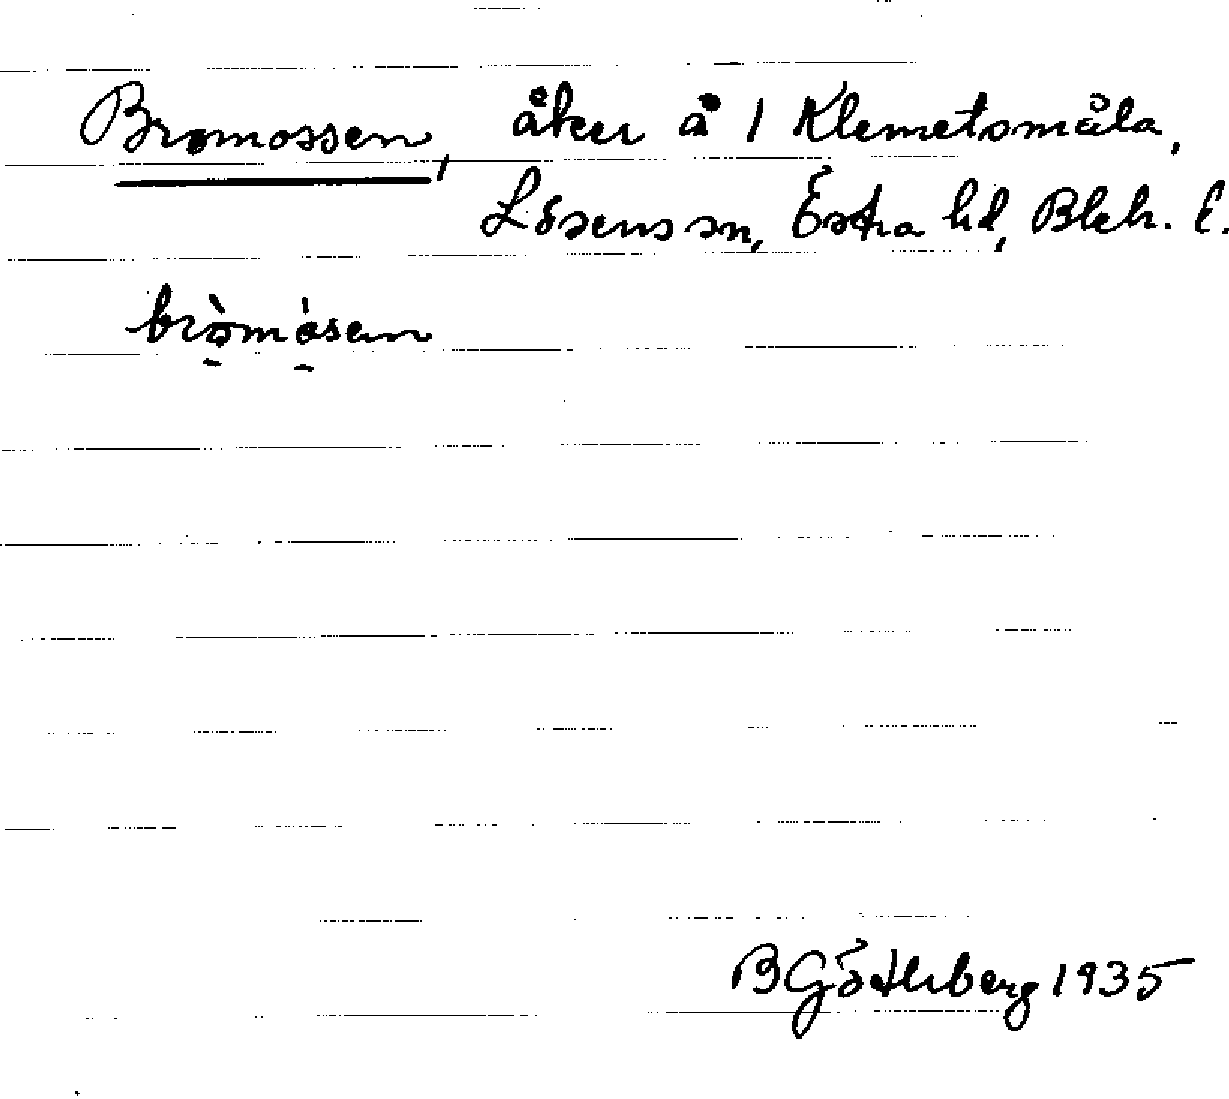 Bromossen, åker å 1 Klemetsmåla,
Lösens sn, Östra hd, Blek. l.
bròmósen
B Göthberg 1935